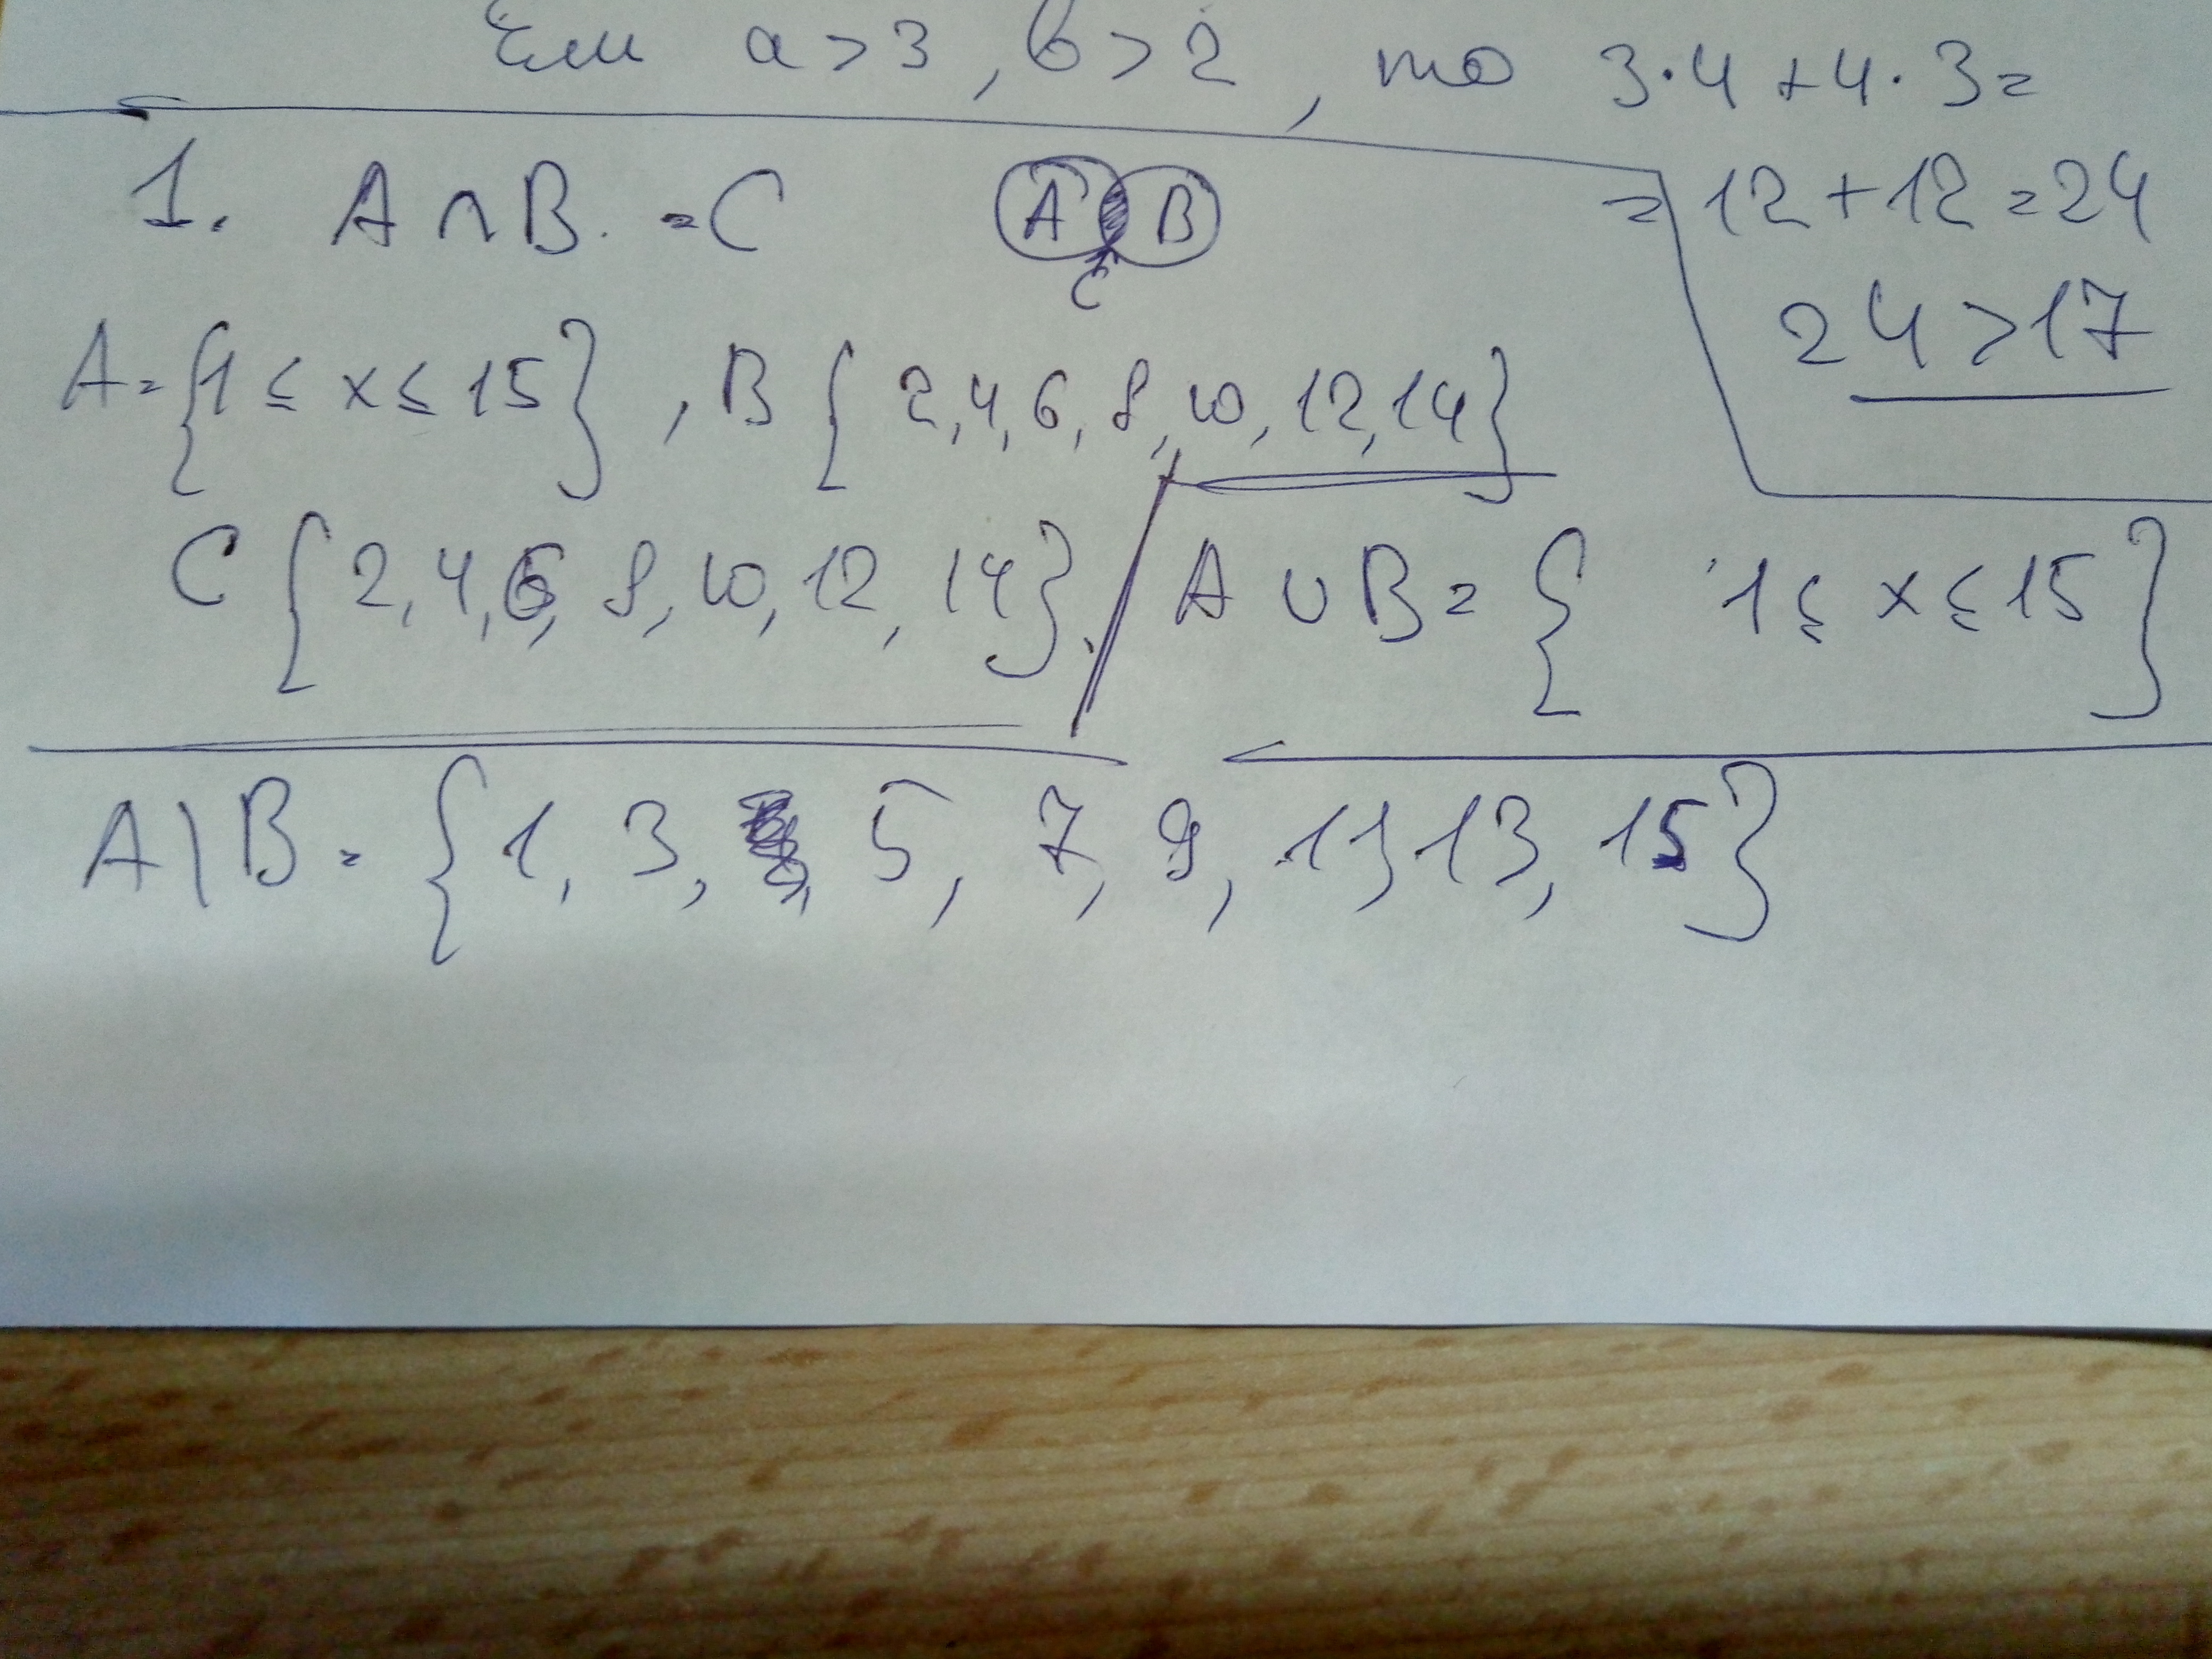 Если a>3, b>2, то 3·4+4·3=
=12+12=24
24>17
1. A∩B.=C
A B
C
A={1≤x≤15}, B{2,4,6,8,10,12,14}
C{2,4,6,8,10,12,14}.
A∪B={1≤x≤15}
A\B={1,3,5,7,9,11,13,15}